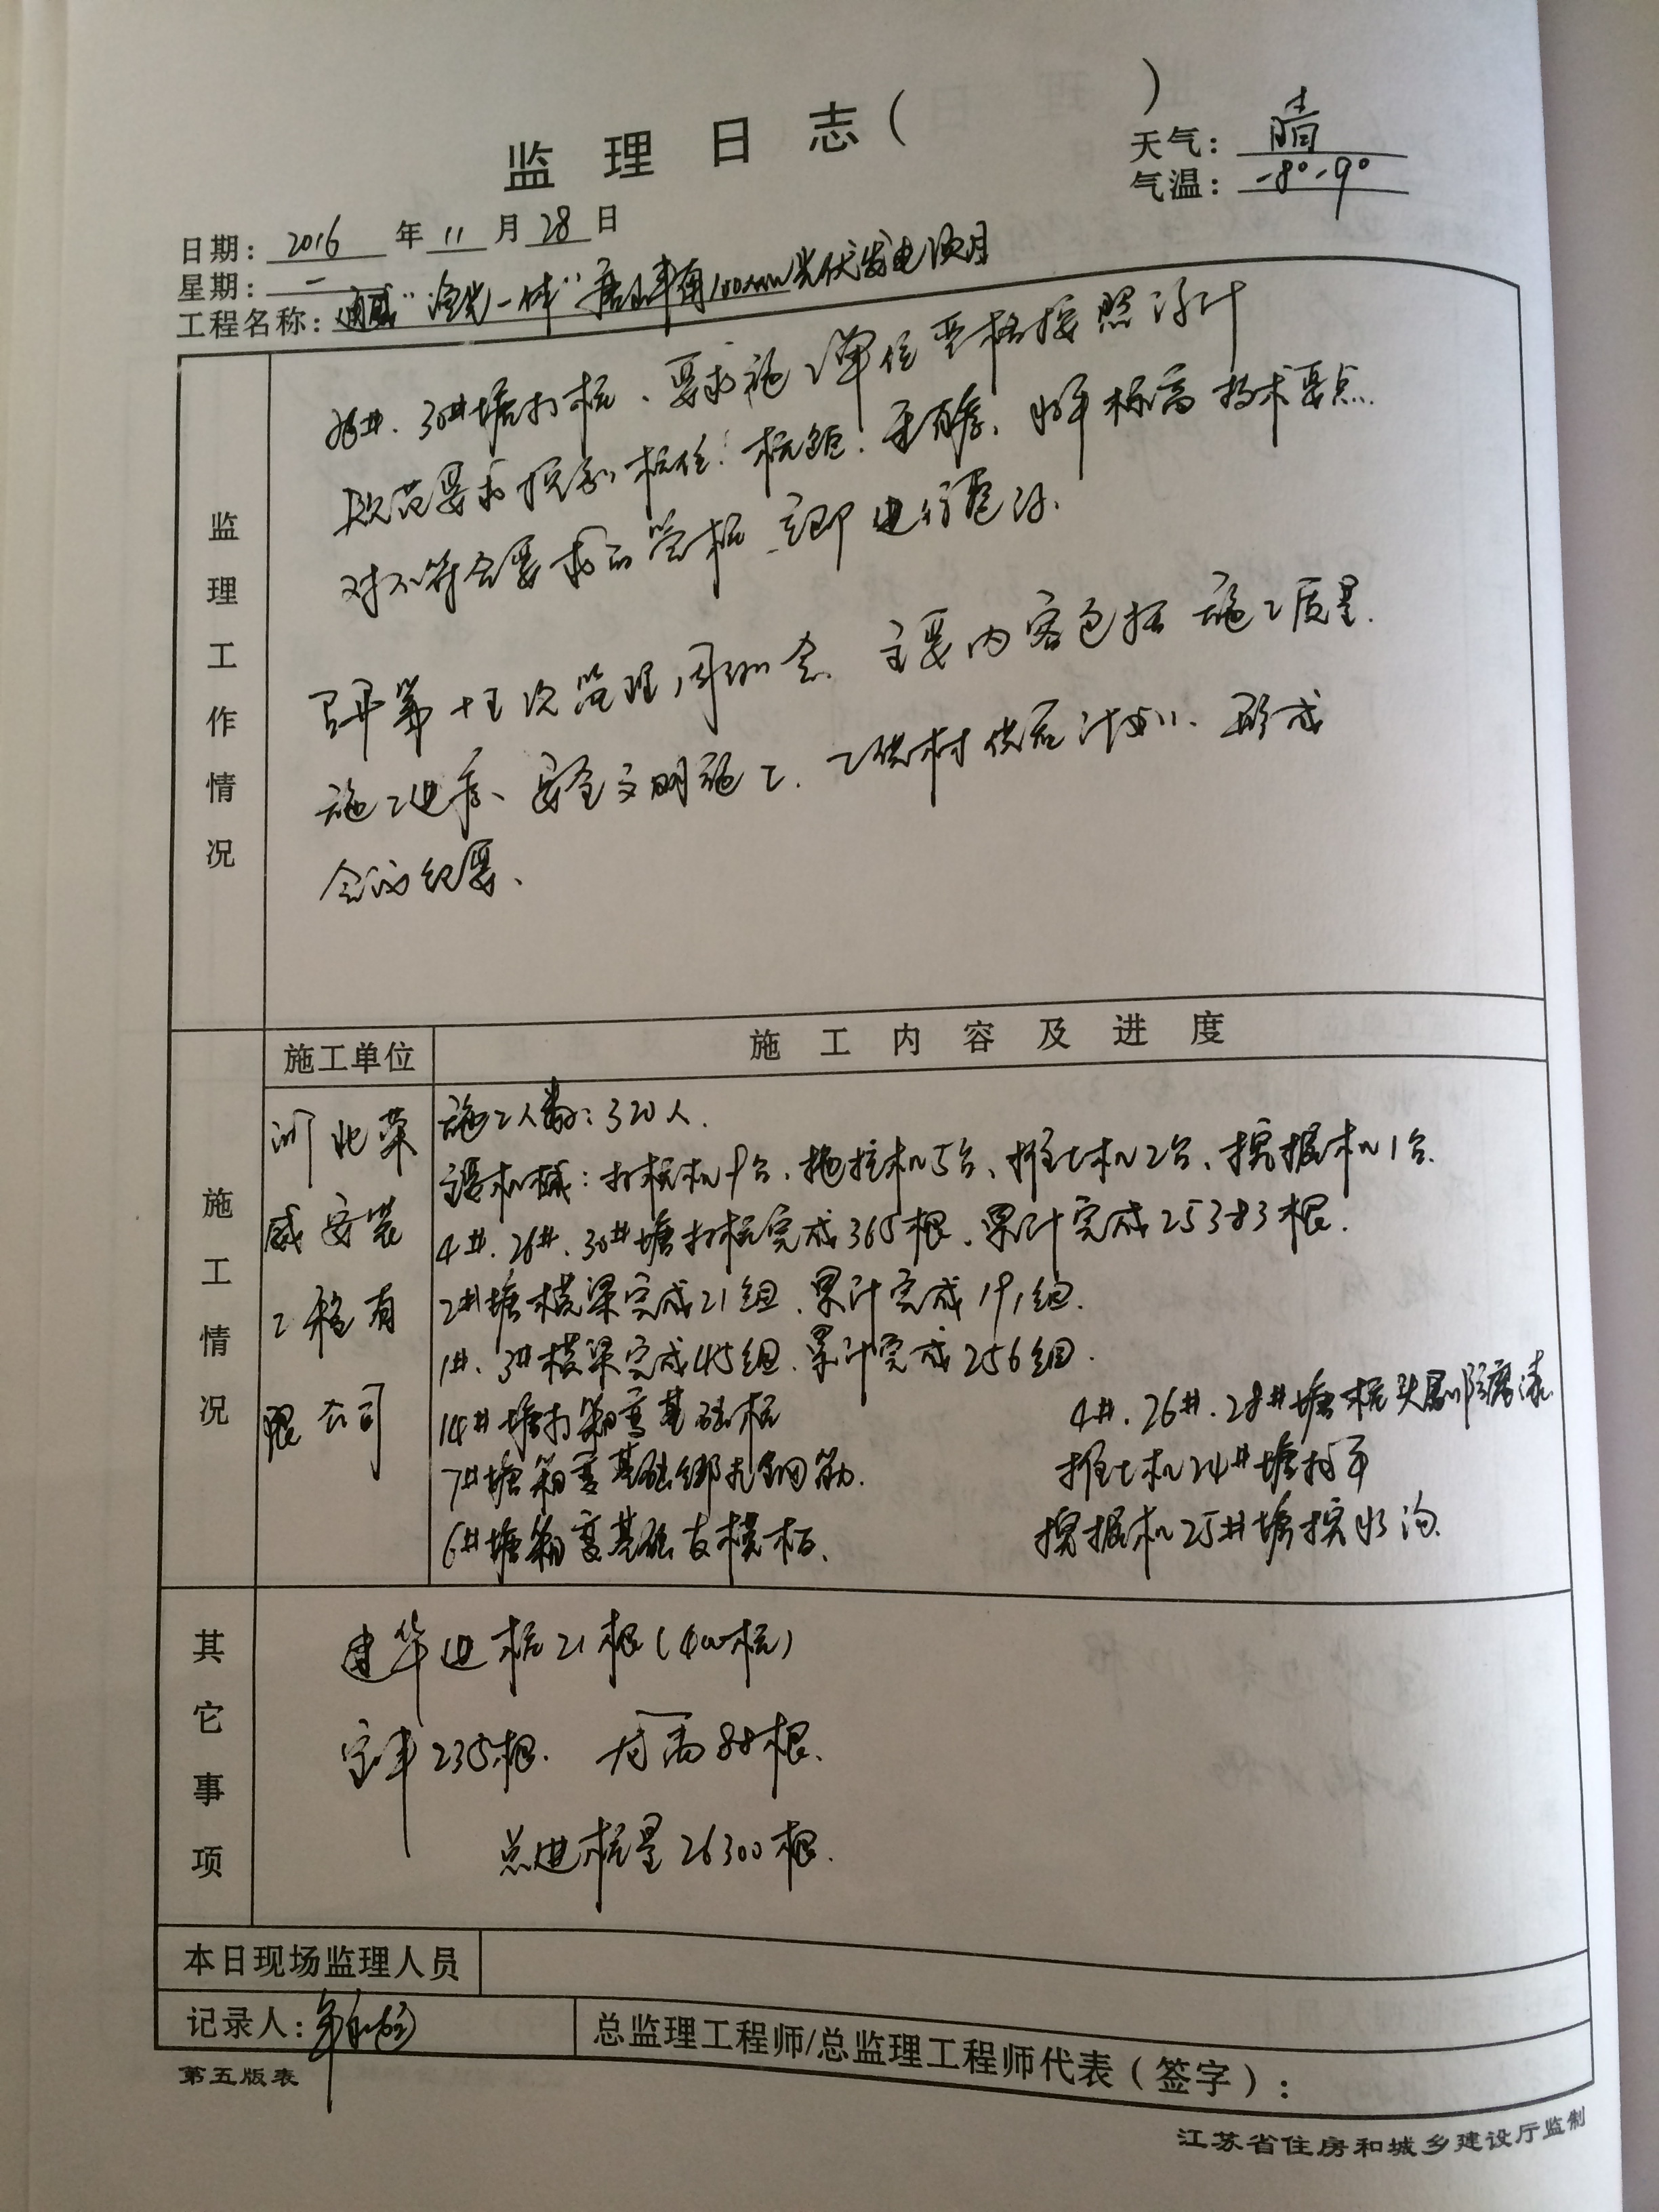 监理日志（ ）
天气：晴
气温：-8°-9°
日期：2016年11月28日
星期：一
工程名称：通威"渔光一体"唐山丰南100MW光伏发电项目
30#塘打桩、要求施工单位严格按照设计
规范要求控制桩位、桩距、垂直度、水平标高技术要点.
对不符合要求的管桩立即进行整改.
召开第十五次监理周例会、主要内容包括施工质量.
施工进度、安全文明施工、乙供材供应计划、形成
会议纪要、
监理工作情况
施工单位
施工内容及进度
施工情况
河北荣
威安装
工程有
限公司
施工人数：320人.
主要机械：打桩机9台、拖拉机5台、推土机2台、挖掘机1台.
4#.26#.30#塘打桩完成365根、累计完成25383根.
2#塘横梁完成21组、累计完成191组.
1#、3#横梁完成45组、累计完成256组.
14#塘打箱变基础桩
4#.26#.28#塘桩头刷防腐漆
7#塘箱变基础绑扎钢筋.
推土机24#塘推平
6#塘箱变基础支模板、
挖掘机25#塘挖水沟.
其它事项
建华进桩21根(400桩)
宝丰235根. 88根、
总进桩量26300根.
本日现场监理人员
记录人：
总监理工程师/总监理工程师代表（签字）：
第五版表
江苏省住房和城乡建设厅监制